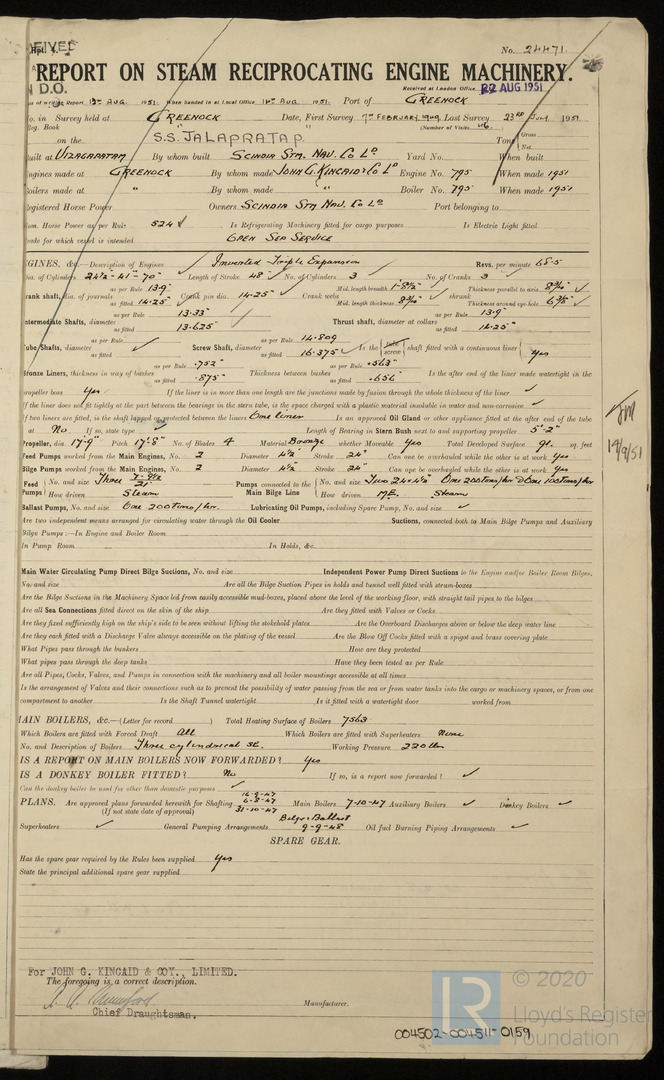 Rpt. 4.
No. 24471.
REPORT ON STEAM RECIPROCATING ENGINE MACHINERY.
D.O.
Received at London Office 22 AUG 1951
Report 13th AUG. 1951. When handed in at Local Office 14th AUG. 1951. Port of GREENOCK
No. in Survey held at GREENOCK Date, First Survey 7th FEBRUARY 1949 Last Survey 23RD JULY 1951
Reg. Book (Number of Visits 46)
on the S.S. "JALAPRATAP" Tons Gross Net
Built at VIZAGAPATAM By whom built SCINDIA STM. NAV. Co Ld Yard No. When built
Engines made at GREENOCK By whom made JOHN G. KINCAID & Co Ld Engine No. 795 When made 1951
Boilers made at " By whom made " Boiler No. 795 When made 1951
Registered Horse Power Owners SCINDIA STM NAV. Co Ld Port belonging to
Nom. Horse Power as per Rule 524 Is Refrigerating Machinery fitted for cargo purposes Is Electric Light fitted
Trade for which vessel is intended OPEN SEA SERVICE
ENGINES, &c.—Description of Engines Inverted Triple Expansion Revs. per minute 68.5
Dia. of Cylinders 24½"-41"-70" Length of Stroke 48" No. of Cylinders 3 No. of Cranks 3
Crank shaft, dia. of journals as per Rule 13.9" as fitted 14.25" Crank pin dia. 14.25" Crank webs Mid. length breadth 1-8½" Mid. length thickness 8¾" shrunk Thickness parallel to axis 8¾" Thickness around eye-hole 6⅜"
Intermediate Shafts, diameter as per Rule 13.33" as fitted 13.625" Thrust shaft, diameter at collars as per Rule 13.9" as fitted 14.25"
Tube Shafts, diameter as fitted Screw Shaft, diameter as per Rule 14.809 as fitted 16.375 Is the tube screw shaft fitted with a continuous liner Yes
Bronze Liners, thickness in way of bushes as per Rule .752" as fitted .875" Thickness between bushes as per Rule .563" as fitted .656" Is the after end of the liner made watertight in the
propeller boss Yes If the liner is in more than one length are the junctions made by fusion through the whole thickness of the liner
If the liner does not fit tightly at the part between the bearings in the stern tube, is the space charged with a plastic material insoluble in water and non-corrosive
If two liners are fitted, is the shaft lapped or protected between the liners One liner Is an approved Oil Gland or other appliance fitted at the after end of the tube
No If so, state type Length of Bearing in Stern Bush next to and supporting propeller 5'-2"
Propeller, dia. 17'-9" Pitch 17'-8" No. of Blades 4 Material Bronze whether Moveable Yes Total Developed Surface 91. sq. feet
Feed Pumps worked from the Main Engines, No. 2 Diameter 4½" Stroke 24" Can one be overhauled while the other is at work Yes
Bilge Pumps worked from the Main Engines, No. 2 Diameter 4½" Stroke 24" Can one be overhauled while the other is at work Yes
Feed Pumps No. and size Three 7-9½/21 How driven Steam Pumps connected to the Main Bilge Line No. and size Two 24x4½" One 200 tons/hr & One 100 tons/hr How driven M.E. Steam
Ballast Pumps, No. and size One 200 tons/hr. Lubricating Oil Pumps, including Spare Pump, No. and size
Are two independent means arranged for circulating water through the Oil Cooler Suctions, connected both to Main Bilge Pumps and Auxiliary
Bilge Pumps:—In Engine and Boiler Room
In Pump Room In Holds, &c.
Main Water Circulating Pump Direct Bilge Suctions, No. and size Independent Power Pump Direct Suctions to the Engine and/or Boiler Room Bilges,
No. and size Are all the Bilge Suction Pipes in holds and tunnel well fitted with strum-boxes
Are the Bilge Suctions in the Machinery Space led from easily accessible mud-boxes, placed above the level of the working floor, with straight tail pipes to the bilges
Are all Sea Connections fitted direct on the skin of the ship Are they fitted with Valves or Cocks
Are they fixed sufficiently high on the ship's side to be seen without lifting the stokehold plates Are the Overboard Discharges above or below the deep water line
Are they each fitted with a Discharge Valve always accessible on the plating of the vessel Are the Blow Off Cocks fitted with a spigot and brass covering plate
What Pipes pass through the bunkers How are they protected
What pipes pass through the deep tanks Have they been tested as per Rule
Are all Pipes, Cocks, Valves, and Pumps in connection with the machinery and all boiler mountings accessible at all times
Is the arrangement of Valves and their connections such as to prevent the possibility of water passing from the sea or from water tanks into the cargo or machinery spaces, or from one
compartment to another Is the Shaft Tunnel watertight Is it fitted with a watertight door worked from
MAIN BOILERS, &c.—(Letter for record ) Total Heating Surface of Boilers 7563
Which Boilers are fitted with Forced Draft All Which Boilers are fitted with Superheaters None
No. and Description of Boilers Three cylindrical SE. Working Pressure 220 lbs
IS A REPORT ON MAIN BOILERS NOW FORWARDED? Yes
IS A DONKEY BOILER FITTED? No If so, is a report now forwarded?
Can the donkey boiler be used for other than domestic purposes
PLANS. Are approved plans forwarded herewith for Shafting 16-9-47 6-8-47 31-10-47 Main Boilers 7-10-47 Auxiliary Boilers Donkey Boilers
(If not state date of approval)
Superheaters General Pumping Arrangements Bilge & Ballast 9-9-48 Oil fuel Burning Piping Arrangements
SPARE GEAR.
Has the spare gear required by the Rules been supplied Yes
State the principal additional spare gear supplied
19/9/51
For JOHN G. KINCAID & COY., LIMITED.
The foregoing is a correct description.
Chief Draughtsman.
Manufacturer.
004502-004511-0159
LR
© 2020
Lloyd's Register
Foundation